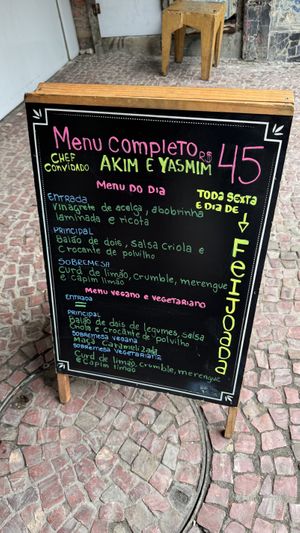 Menu completo R$ 45
CHEF CONVIDADO AKIM E YASMIM
Menu do Dia
ENTRADA
Vinagrete de acelga, abobrinha
laminada e ricota
PRINCIPAL
Baião de dois, salsa criola e
crocante de polvilho
SOBREMESA
Curd de limão, crumble, merengue
e capim limão
Menu vegano e vegetariano
ENTRADA
=
PRINCIPAL
Baião de dois de legumes, salsa
e crocante de polvilho
SOBREMESA VEGANA
Maçã caramelizada
SOBREMESA VEGETARIANA
Curd de limão, crumble, merengue
e capim limão
TODA SEXTA
E DIA DE
FEIJOADA